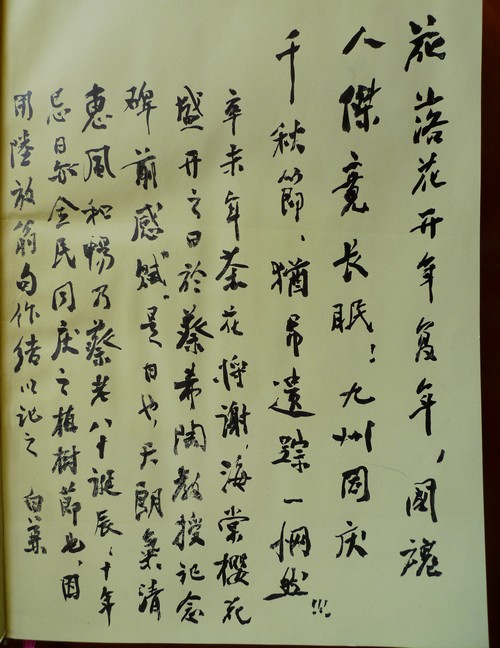 花落花开年复年，国魂
人傑竟长眠！九州同庆
千秋節、猶吊遗踪一惘然!!!
辛未年茶花将谢，海棠櫻花
盛开之日於蔡希陶教授记念
碑前感赋。是日也，天朗氣清
惠風和暢乃蔡老八十诞辰、十年
忌日和全民同庆之植樹節也，因
用陸放翁句作结以记之